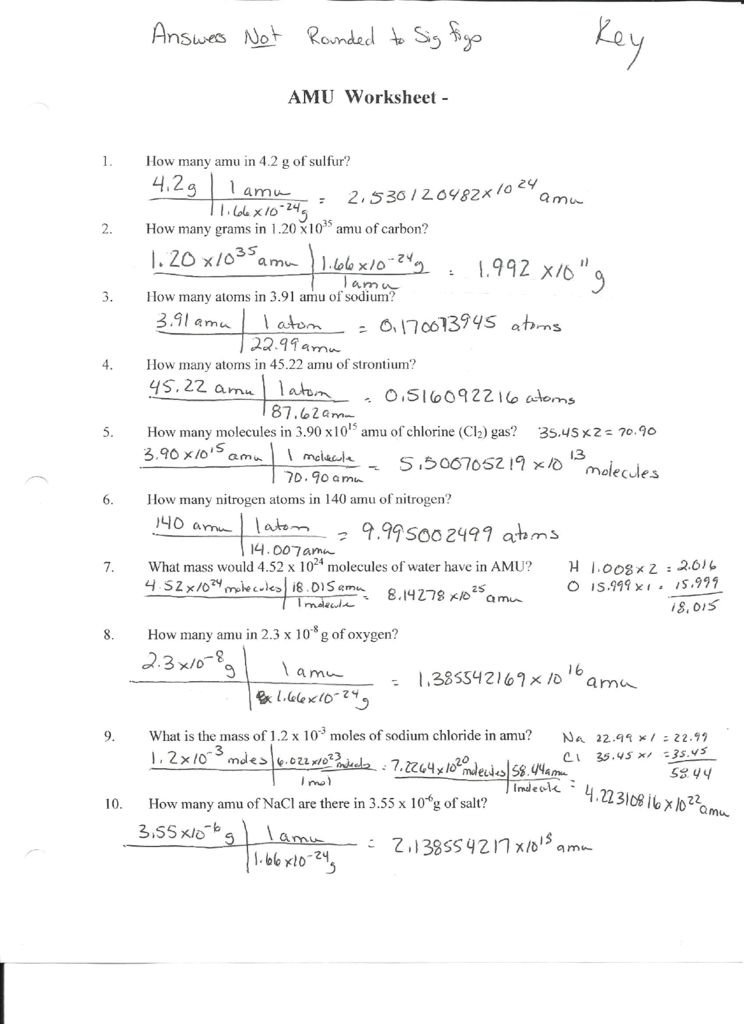 Answers Not Rounded to Sig figs Key
AMU Worksheet -
1. How many amu in 4.2 g of sulfur?
4.2g | 1 amu = 2.530120482 x 10^24 amu
1.66 x 10^-24 g
2. How many grams in 1.20 x10^35 amu of carbon?
1.20 x 10^35 amu | 1.66 x 10^-24 g = 1.992 x 10^11 g
1 amu
3. How many atoms in 3.91 amu of sodium?
3.91 amu | 1 atom = 0.170073945 atoms
22.99 amu
4. How many atoms in 45.22 amu of strontium?
45.22 amu | 1 atom = 0.516092216 atoms
87.62 amu
5. How many molecules in 3.90 x10^15 amu of chlorine (Cl₂) gas? 35.45 x 2 = 70.90
3.90 x 10^15 amu | 1 molecule = 5.500705219 x 10^13 molecules
70.90 amu
6. How many nitrogen atoms in 140 amu of nitrogen?
140 amu | 1 atom = 9.995002499 atoms
14.007 amu
7. What mass would 4.52 x 10^24 molecules of water have in AMU? H 1.008 x 2 = 2.016
4.52 x 10^24 molecules | 18.015 amu = 8.14278 x 10^25 amu O 15.999 x 1 = 15.999
1 molecule 18.015
8. How many amu in 2.3 x 10^-8 g of oxygen?
2.3 x 10^-8 g | 1 amu = 1.385542169 x 10^16 amu
1.66 x 10^-24 g
9. What is the mass of 1.2 x 10^-3 moles of sodium chloride in amu? Na 22.99 x 1 = 22.99
Cl 35.45 x 1 = 35.45
58.44
1.2 x 10^-3 moles | 6.022 x 10^23 molecules = 7.2264 x 10^20 molecules | 58.44 amu = 4.22310816 x 10^22 amu
1 mol 1 molecule
10. How many amu of NaCl are there in 3.55 x 10^-6 g of salt?
3.55 x 10^-6 g | 1 amu = 2.138554217 x 10^18 amu
1.66 x 10^-24 g